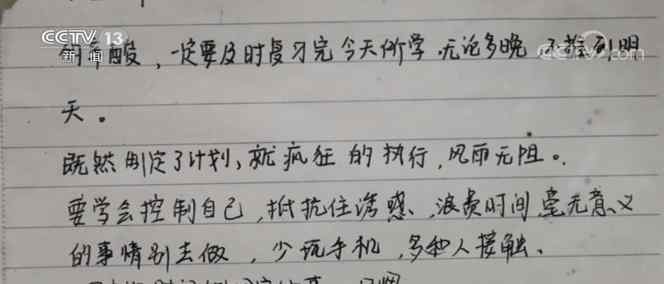 CCTV 13
新闻
cctv.com
的辛酸，一定要及时复习完今天所学，无论多晚 不推到明
天。
既然制定了计划，就疯狂的执行，风雨无阻。
要学会控制自己，抵抗住诱惑、浪费时间毫无意义
的事情别去做，少玩手机，多和人接触、